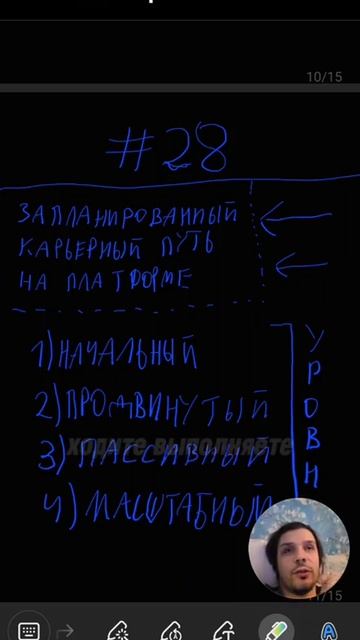 10/15
#28
ЗАПЛАНИРОВАННЫЙ
КАРЬЕРНЫЙ ПУТЬ
НА ПЛАТФОРМЕ
1) НАЧАЛЬНЫЙ
2) ПРОДВИНУТЫЙ
ходите выполняете
3) ПАССИВНЫЙ
4) МАСШТАБНЫЙ
УРОВН
11/15